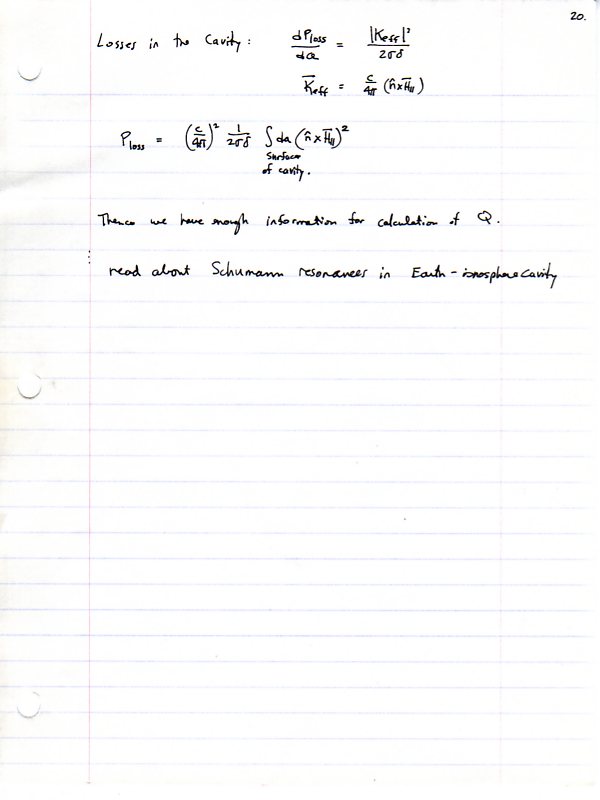 20.
Losses in the Cavity: dP_loss/da = |K_eff|²/2σδ
K̄_eff = c/4π (n̂×H̄_∥)
P_loss = (c/4π)² 1/2σδ ∫da (n̂×H̄_∥)²
surface
of cavity.
Thence we have enough information for calculation of Q.
⋮ read about Schumann resonances in Earth-ionosphere cavity